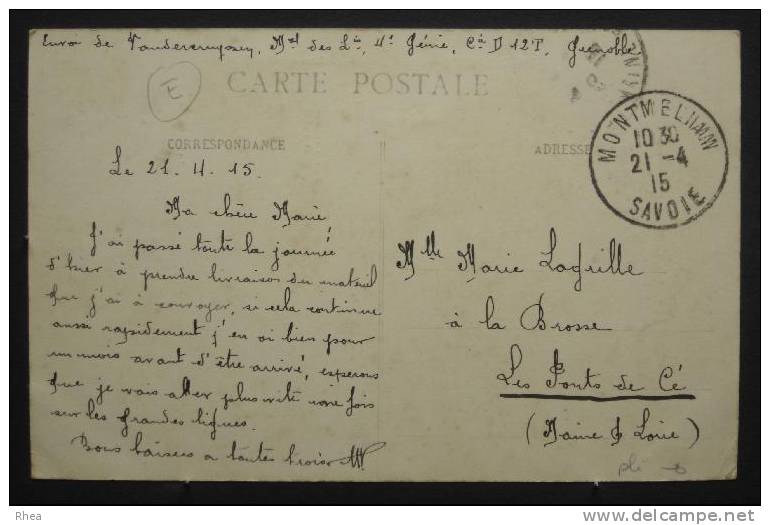 de Vandercruyssen, Mal des Lis, 4e Génie, Cie D 12T, Grenoble.
E
CARTE POSTALE
CORRESPONDANCE
ADRESSE
MONTMELIAN
10 30
21 -4
15
SAVOIE
Le 21. 4. 15.
Ma chère Marie,
J'ai passé toute la journée
d'hier à prendre livraison du matériel
que j'ai à convoyer, si cela continue
aussi rapidement j'en ai bien pour
un mois avant d'être arrivé, espérons
que je vais aller plus vite une fois
sur les grandes lignes.
Bons baisers a toutes trois
Mlle Marie Lagrille
à la Brosse
Les Ponts de Cé
(Maine & Loire)
pli
Rhea
delcampe.net